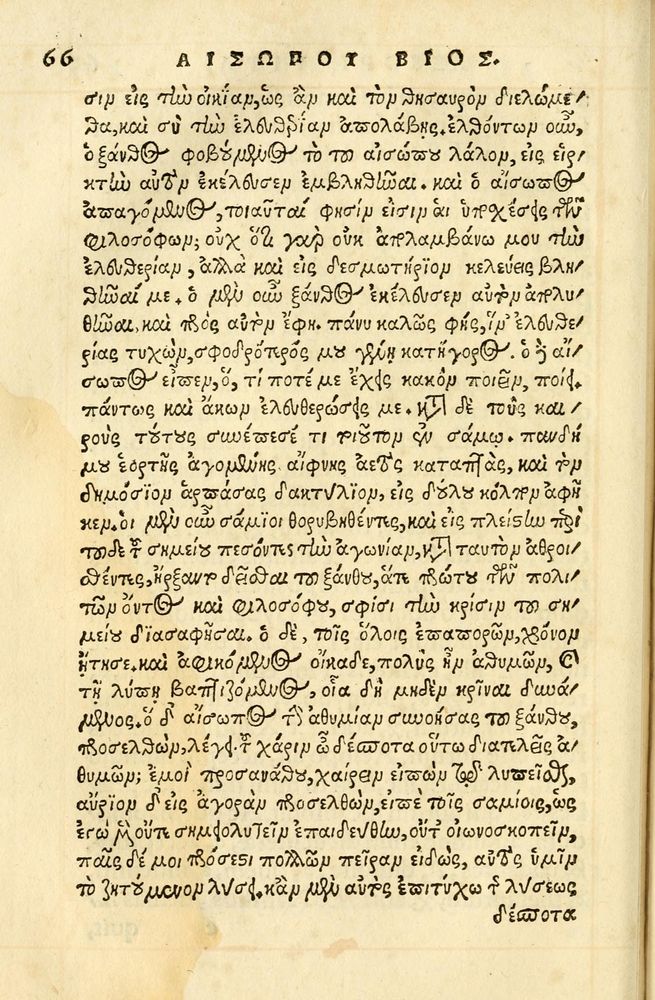 66 ΑΙΣΩΠΟΥ ΒΙΟΣ.
σιν εἰς τὴν οἰκίαν, ὡς ἂν καὶ τὸν θησαυρὸν διελώμε
θα, καὶ σὺ τὴν ἐλευθερίαν ἀπολάβῃς. ἐλθόντων οὖν,
ὁ ξάνθος φοβούμενος τὸ τοῦ αἰσώπου λάλον, εἰς εἱρ
κτὴν αὐτὸν ἐκέλευσεν ἐμβληθῆναι. καὶ ὁ αἴσωπος
ἀπαγόμενος, τοιαῦταί φησίν εἰσιν αἱ ὑποσχέσεις τῶν
φιλοσόφων; οὐχ ὅτι γὰρ οὐκ ἀπολαμβάνω μου τὴν
ἐλευθερίαν, ἀλλὰ καὶ εἰς δεσμωτήριον κελεύεις βλη
θῆναί με. ὁ μὲν οὖν ξάνθος ἐκέλευσεν αὐτὸν ἀπολυ
θῆναι, καὶ πρὸς αὐτὸν ἔφη. πάνυ καλῶς φῂς, ἵν' ἐλευθε
ρίας τυχὼν, σφοδρότερός μου γένῃ κατήγορος. ὁ δὲ αἴ
σωπος εἶπεν, ὅ, τί ποτέ με ἔχεις κακὸν ποιεῖν, ποίει.
πάντως καὶ ἄκων ἐλευθερώσεις με. κατὰ δὲ τοὺς και
ροὺς τούτους συνέπεσέ τι τοιοῦτον ἐν σάμῳ. πανδή
μου ἑορτῆς ἀγομένης αἴφνης ἀετὸς καταπτὰς, καὶ τὸν
δημόσιον ἁρπάσας δακτύλιον, εἰς δούλου κόλπον ἀφῆ
κεν. οἱ μὲν οὖν σάμιοι θορυβηθέντες, καὶ εἰς πλείστην περὶ
τοῦδε τοῦ σημείου πεσόντες τὴν ἀγωνίαν, κατὰ ταυτὸν ἀθροι
σθέντες, ἤρξαντο δεῖσθαι τοῦ ξάνθου, ἅτε πρώτου τῶν πολι
τῶν ὄντος καὶ φιλοσόφου, σφίσι τὴν κρίσιν τοῦ ση
μείου διασαφῆσαι. ὁ δὲ, τοῖς ὅλοις ἐπαπορῶν, χρόνον
ᾔτησε. καὶ ἀφικόμενος οἴκαδε, πολὺς ἦν ἀθυμῶν, καὶ
τῇ λύπῃ βαπτιζόμενος, οἷα δὴ μηδὲν κρῖναι δυνά
μενος. ὁ δ' αἴσωπος τὴν ἀθυμίαν συνοήσας τοῦ ξάνθου,
προσελθὼν, λέγει. τοῦ χάριν ὦ δέσποτα οὕτω διατελεῖς ἀ
θυμῶν; ἐμοὶ προσανάθου, χαίρειν εἰπὼν τῷ λυπεῖσθαι,
αὔριον δ' εἰς ἀγορὰν προσελθὼν, εἰπὲ τοῖς σαμίοις, ὡς
ἐγὼ μὲν οὔτε σημειολυτεῖν ἐπαιδεύθην, οὔτ' οἰωνοσκοπεῖν,
παῖς δέ μοι πρόσεστι πολλῶν πεῖραν εἰδὼς, αὐτὸς ὑμῖν
τὸ ζητούμενον λύσει. κἂν μὲν αὐτὸς ἐπιτύχω τῆς λύσεως
δέσποτα